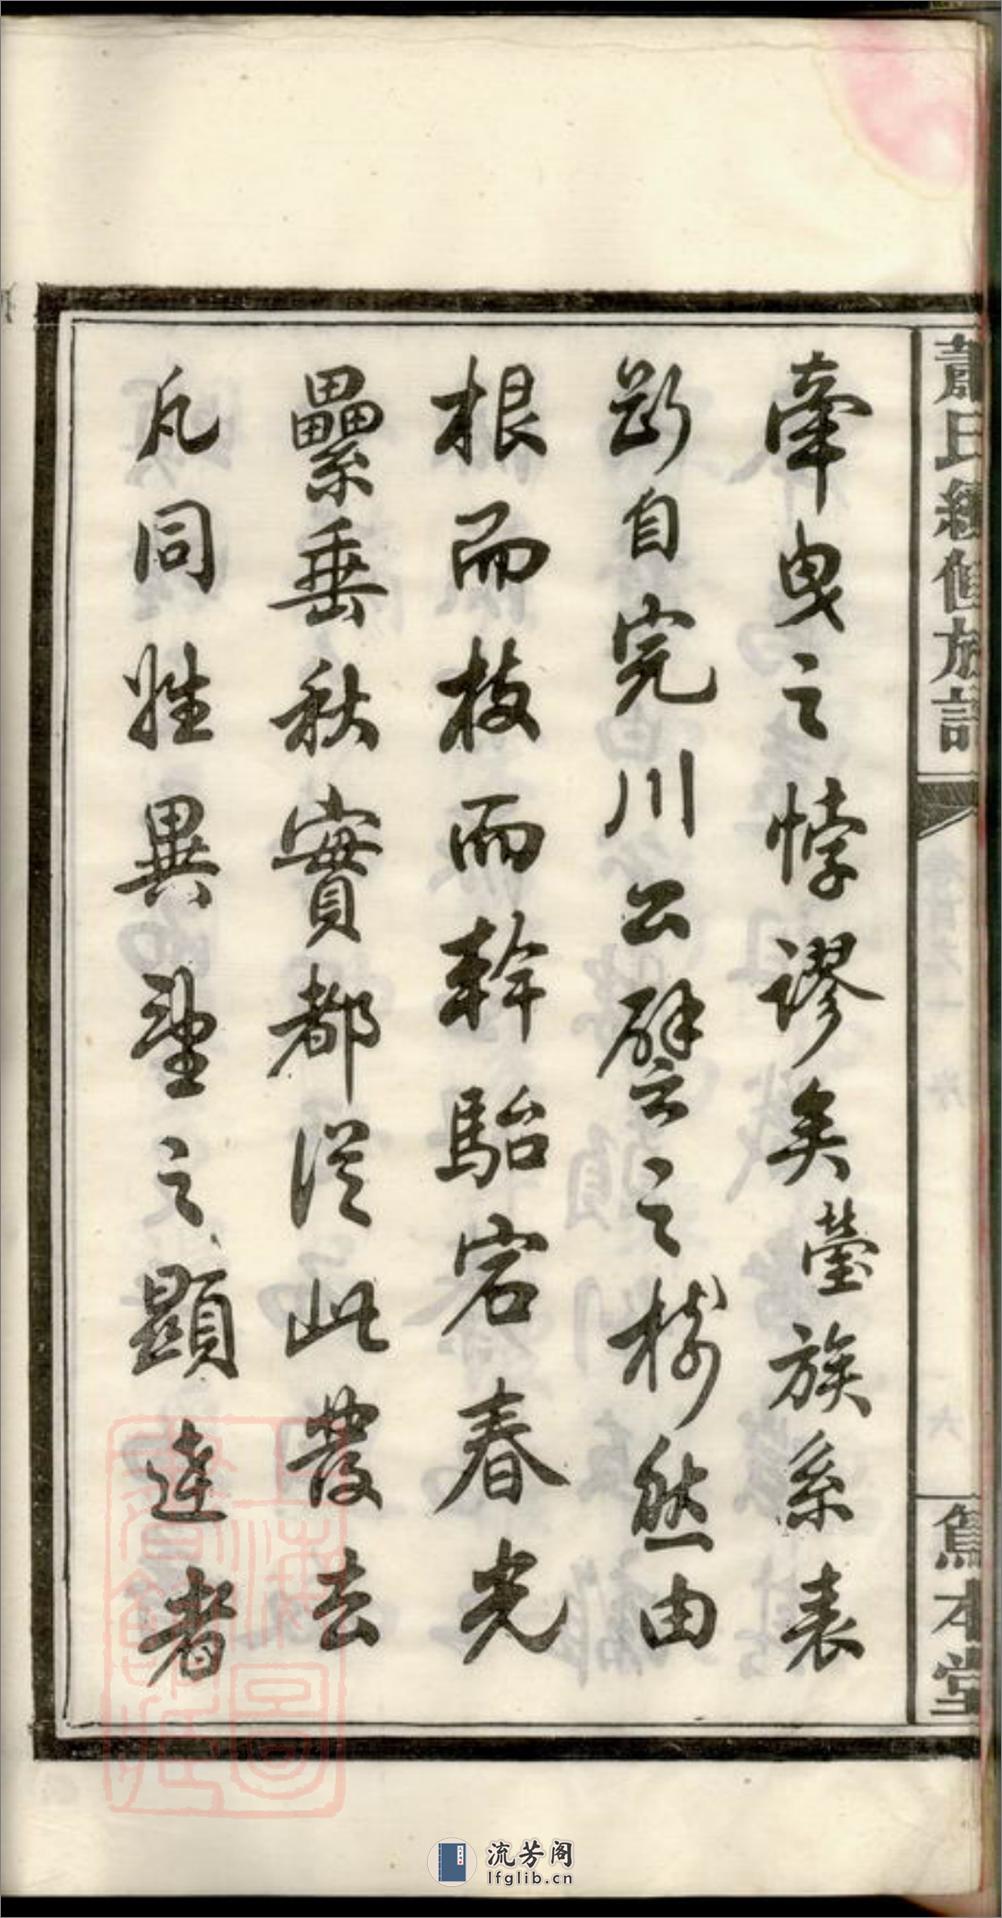 蕭氏續修族譜
篤本堂
牽曳之悖謬矣蓥族系表
斷自完川公譬之樹然由
根而枝而幹駘宕春光
纍垂秋實都從此發去
凡同姓異望之顯達者
流芳阁
lfglib.cn